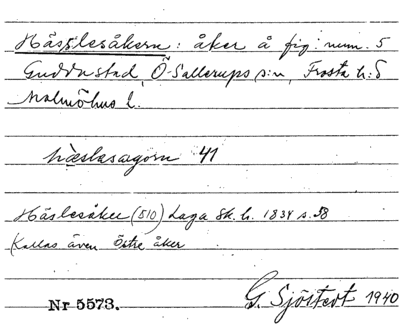 Hässlesåkern: åker å fig. num. 5
Guddastad, Ö Sallerups s:n, Frosta h:d
Malmöhus l.
hæslasagorn 41
Häslesåker (510) Laga sk. h. 1834 s. 58
Kallas även Östre åker
Nr 5573.
G. Sjöstedt 1940